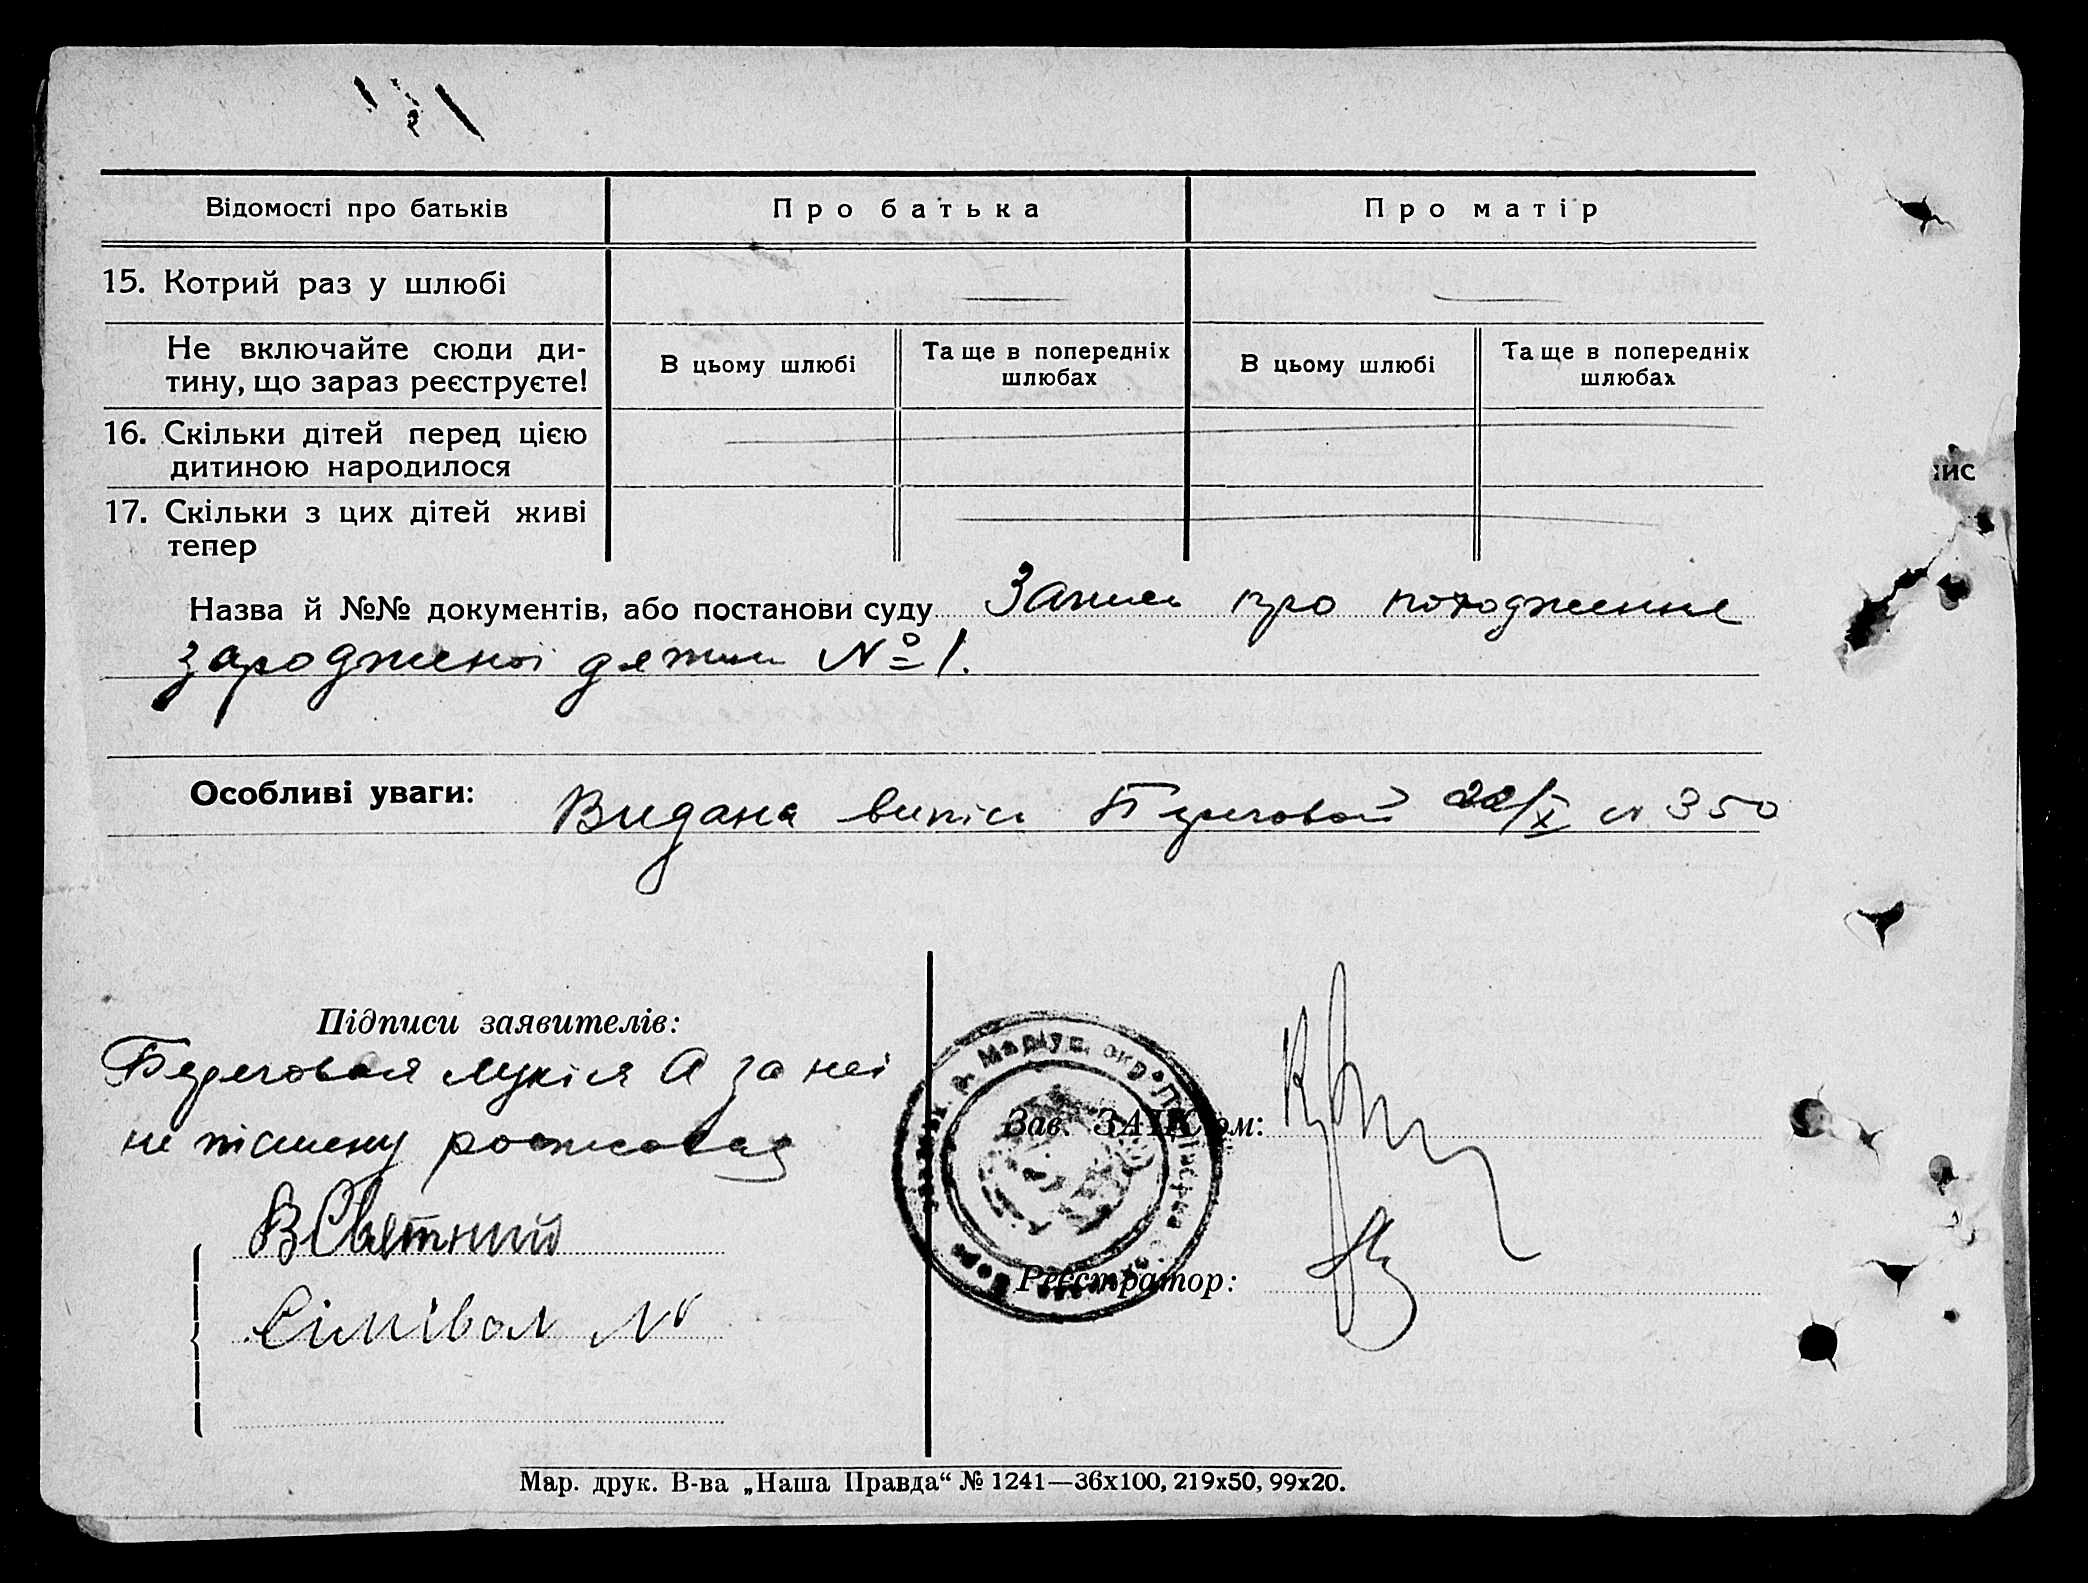 Відомості про батьків
Про батька
Про матір
15. Котрий раз у шлюбі
Не включайте сюди ди-
тину, що зараз реєструєте!
В цьому шлюбі
Та ще в попередніх
шлюбах
В цьому шлюбі
Та ще в попередніх
шлюбах
16. Скільки дітей перед цією
дитиною народилося
17. Скільки з цих дітей живі
тепер
Назва й №№ документів, або постанови суду Запис про походження
зародженої дитини № 1.
Особливі уваги: Видана випис Береговой 22/X № 350
Підписи заявителів:
Береговая Лукія А за неї
не писмену росписовая
В Святний
Зав. ЗАГС'ом:
Реєстратор:
Мар. друк. В-ва „Наша Правда“ № 1241—36x100, 219x50, 99x20.